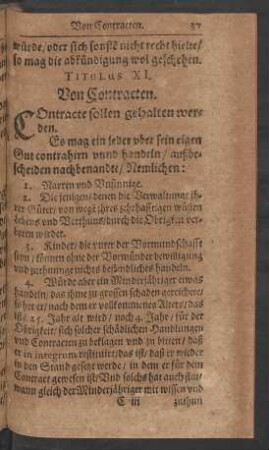 Von Contracten. 37
würde/oder sich sonst nicht recht hielte/
so mag die abkündigung wol geschehen.
TITULUS XI.
Von Contracten.
COntracte sollen gehalten wer-
den.
Es mag ein jeder vber sein eigen
Gut contrahirn vnnd handeln/ außbe-
scheiden nachbenandte/ Nemlichen:
1. Narren und Vnsinnige.
2. Die jenigen/ denen die Verwaltunge jh-
rer Güter/ von wege jhres
Lebens und Verthuns/durch die Obrigkeit ver-
boten wirdet.
3. Kinder/ die vnter der Vormundschafft
seyn/ können ohne der Vormünder bewilligung
und zuthuunge nichts bestendliches handeln.
4. Würde aber ein Minderjähriger etwas
handeln/ das jhme zu grossen schaden gereichete/
so mag er/ nach dem er vollkommenes Alters/ das
ist/ 25. Jahr alt wird/ noch 4. Jahr/ für der
Obrigkeit/ sich solcher schädlichen Handlungen
und Contracten zu beklagen und zu bitten/ daß
er in integrum restituirt/ das ist/ daß er wieder
in den Stand gesetzt werde/ in dem er für dem
Contract gewesen ist/ Vnd solchs hat auch stat/
wann gleich der Minderjähriger mit wissen vnd
E iij zuthun